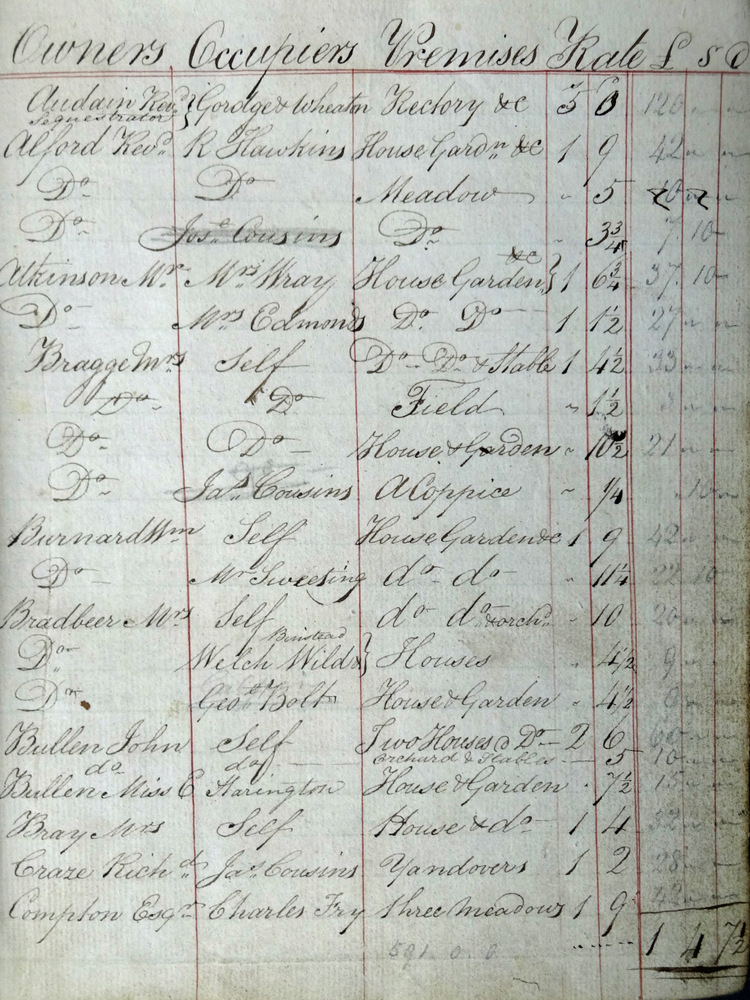 Owners Occupiers Premises Rate £ S D
Audain Revd } Gordge & Wheaton Rectory &c 5 0 120
Sequestrator
Alford Revd R Hawkins House Gardn &c 1 9 42
Do Do Meadow " 5 10
Do Josa Cousins Do " 3¾ 7 10
&c
Atkinson Mr Mrs Wray House Garden } 1 6¾ 37 10
Do Mrs Edmonds Do Do 1 1½ 27
Bragge Mrs Self Do Do & Stable 1 4½ 33
Do Do Field " 1½
Do Do House & Garden " 10½ 21
Do Jas Cousins A Coppice " ¼ 10
Burnard Wm Self House Garden &c 1 9 42
Do Mr Sweeting do do " 11¼ 22 10
Bradbeer Mrs Self do do & orchd " 10 20
Binstead
Do Welch Wilds } Houses " 4½ 9
Do Geo Bolt House & Garden " 4½
Bullen John Self Two Houses & Do 2 6 60
do do Orchard & Stables 5 10
Bullen Miss E Harington House & Garden " 7½ 15
Bray Mrs Self House & do 1 4 32
Craze Richd Jas Cousins Yandovers 1 2 28
Compton Esqr Charles Fry three meadows 1 9 42
591 0 0 1 4 7½